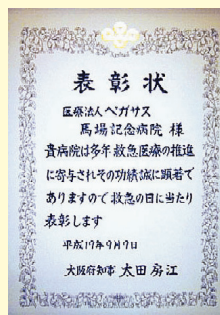 表彰状
医療法人ペガサス
馬場記念病院 様
貴病院は多年救急医療の推進
に寄与されその功績誠に顕著で
ありますので救急の日に当たり
表彰します
平成17年9月9日
大阪府知事 太田房江